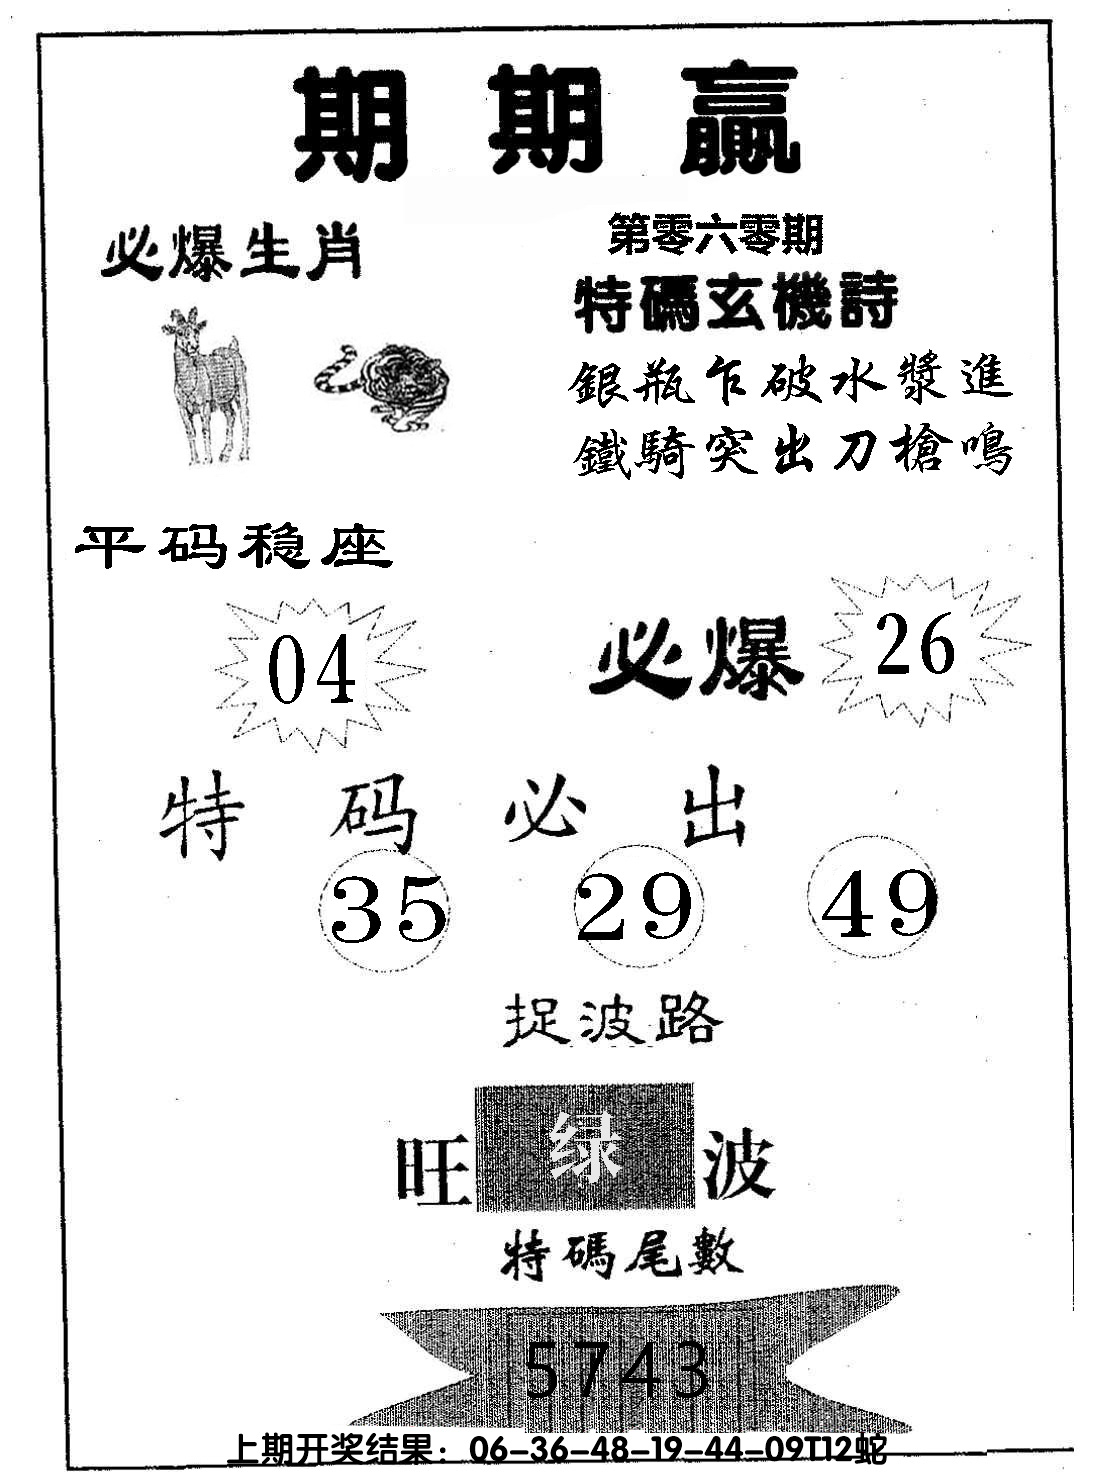 期期贏
必爆生肖
第零六零期
特碼玄機詩
銀瓶乍破水漿進
鐵騎突出刀槍鳴
平码稳座
04
必爆
26
特码必出
35 29 49
捉波路
旺绿波
特碼尾數
5743
上期开奖结果：06-36-48-19-44-09T12蛇